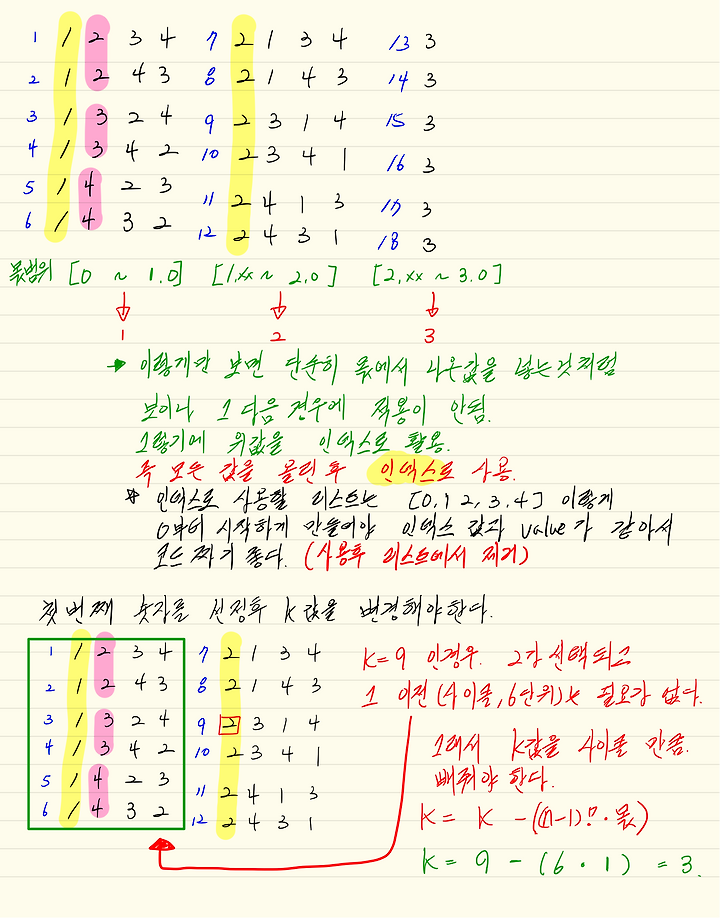 1 1 2 3 4 7 2 1 3 4 13 3
2 1 2 4 3 8 2 1 4 3 14 3
3 1 3 2 4 9 2 3 1 4 15 3
4 1 3 4 2 10 2 3 4 1 16 3
5 1 4 2 3 11 2 4 1 3 17 3
6 1 4 3 2 12 2 4 3 1 18 3
몫범위 [0 ~ 1.0] [1.xx ~ 2.0] [2.xx ~ 3.0]
1 2 3
이렇게만 보면 단순히 몫에서 나온값을 넣는것처럼
보이나 1 다음 경우에 적용이 안됨.
그렇기에 위값을 인덱스로 활용.
즉 모든 값을 올린 후 인덱스로 사용.
* 인덱스로 사용할 리스트는 [0, 1 2, 3, 4] 이렇게
0부터 시작하게 만들어야 인덱스 값과 value가 같아서
코드 짜기 좋다. (사용후 리스트에서 제거)
첫번째 숫자를 선정후 k값을 변경해야한다.
1 1 2 3 4 7 2 1 3 4
2 1 2 4 3 8 2 1 4 3
3 1 3 2 4 9 2 3 1 4
4 1 3 4 2 10 2 3 4 1
5 1 4 2 3 11 2 4 1 3
6 1 4 3 2 12 2 4 3 1
K=9 인경우. 2가 선택되고
1 이전 (사이클, 6단위)는 필요가 없다.
그래서 k값을 사이클 만큼.
빼줘야 한다.
K = K - ((n-1)! · 몫)
K = 9 - (6 · 1) = 3.